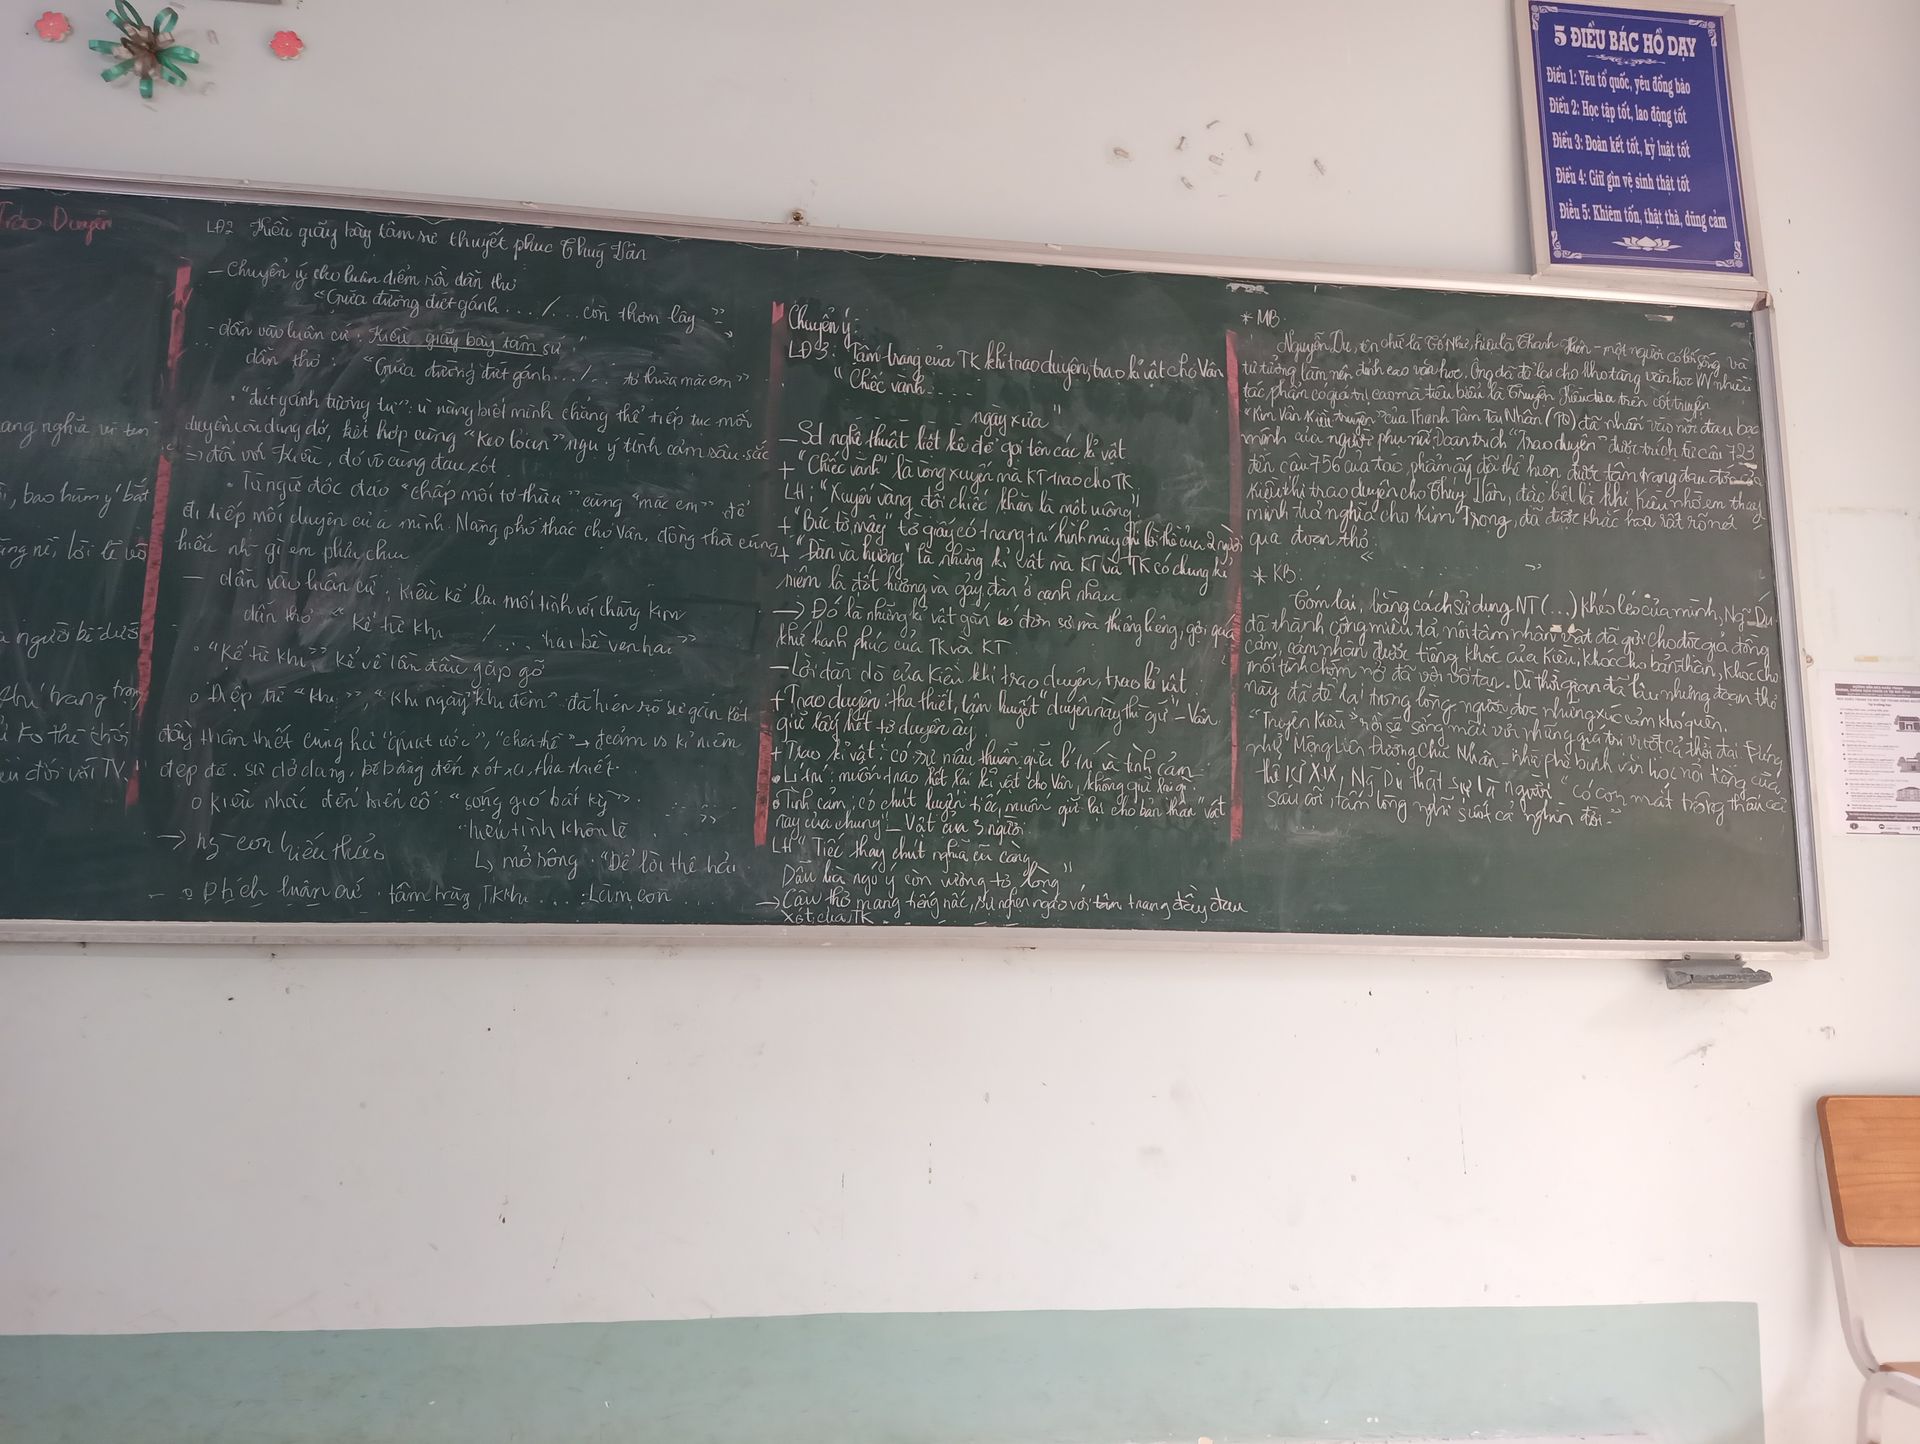 5 ĐIỀU BÁC HỒ DẠY
Điều 1: Yêu tổ quốc, yêu đồng bào
Điều 2: Học tập tốt, lao động tốt
Điều 3: Đoàn kết tốt, kỷ luật tốt
Điều 4: Giữ gìn vệ sinh thật tốt
Điều 5: Khiêm tốn, thật thà, dũng cảm
Trao Duyên
ang nghĩa vì tìn
, bao hàm ý bắt
ng nề, lời lẽ
người bề dưới
trang trọng
đối với TV
LĐ2 Kiều giãy bày tâm sự thuyết phục Thuý Vân
- Chuyển ý cho luận điểm rồi dẫn thơ
"Giữa đường đứt gánh . . . / . . . còn thơm lây"
- dẫn vào luận cứ: Kiều giãy bày tâm sự."
dẫn thơ: "Giữa đường đứt gánh . . . / . . tơ thừa mặc em"
"đứt gánh tương tư": ý nàng biết mình chẳng thể tiếp tục mối
duyên còn dang dở, kết hợp cùng "Keo loan" ngụ ý tình cảm sâu sắc
=> đối với Kiều, đó vô cùng đau xót.
Từ ngữ độc đáo "chắp mối tơ thừa" cùng "mặc em" để
đi tiếp mối duyên của mình. Nàng phó thác cho Vân, đồng thời cũng
hiểu những gì em phải chịu
- dẫn vào luận cứ: Kiều kể lại mối tình với chàng Kim
dẫn thơ "Kể từ khi / . . . hai bề vẹn hai"
"Kể từ khi" kể về lần đầu gặp gỡ
Điệp từ "khi", "khi ngày khi đêm" đã hiện rõ sự gắn kết
đầy thân thiết cùng h "quạt ước", "chén thề" → t.cảm vs kỉ niệm
đẹp đẽ. sự dở dang, bẽ bàng đến xót xa, tha thiết.
Kiều nhắc đến biến cố: "sóng gió bất kỳ".
"hiếu tình khôn lẽ . . . ."
→ ng con hiếu thảo
↳ mở rộng: "Để lời thệ hải
Phtích luận cứ tâm trạng TKkh . . . . Làm con
Chuyển ý:
LĐ 3: Tâm trạng của TK khi trao duyên, trao kỉ vật cho Vân
"Chiếc vành . . . .
ngày xưa"
- Sd nghệ thuật liệt kê để gọi tên các kỉ vật
+ "Chiếc vành" là vòng xuyến mà KT trao cho TK
LH: "Xuyến vàng đôi chiếc khăn là một vuông"
+ "Bức tờ mây" tờ giấy có trang trí hình mây ghi lời thề của 2 người
+ "Đàn và hương" là những kỉ vật mà KT và TK có chung kỉ
niệm là đốt hương và gảy đàn ở cạnh nhau
→ Đó là những kỉ vật gắn bó đơn sơ mà thiêng liêng, gợi quá
khứ hạnh phúc của TK và KT
- Lời dặn dò của Kiều khi trao duyên, trao kỉ vật
+ Trao duyên: tha thiết, tâm huyết "duyên này thì giữ" - Vân
giữ lấy hết tơ duyên ấy
+ Trao kỉ vật: có sự mâu thuẫn giữa lí trí và tình cảm
Lí trí: muốn trao hết lại kỉ vật cho Vân, không giữ lại gì
Tình cảm: có chút luyến tiếc, muốn giữ lại cho bản thân "vật
này của chung" - Vật của 3 người
LH "Tiếc thay chút nghĩa cũ càng
Dẫu lìa ngó ý còn vương tơ lòng"
→ Câu thơ mang tiếng nấc, sự nghẹn ngào với tâm trạng đầy đau
xót của TK
* MB:
Nguyễn Du, tên chữ là Tố Như, hiệu là Thanh Hiên - một người có lối sống và
tư tưởng làm nên đỉnh cao văn học. Ông đã để lại cho kho tàng văn học VN nhiều
tác phẩm có giá trị cao mà tiêu biểu là Truyện Kiều dựa trên cốt truyện
"Kim Vân Kiều truyện" của Thanh Tâm Tài Nhân (TQ) đã nhấn vào nỗi đau bạc
mệnh của người phụ nữ. Đoạn trích "Trao duyên" được trích từ câu 723
đến câu 756 của tác phẩm ấy đã thể hiện được tâm trạng đau đớn của
Kiều khi trao duyên cho Thuý Vân, đặc biệt là khi Kiều nhờ em thay
mình trả nghĩa cho Kim Trọng, đã được khắc hoạ rất rõ nét
qua đoạn thơ:
" . . "
* KB:
Tóm lại, bằng cách sử dụng NT (...) khéo léo của mình, Ng Du
đã thành công miêu tả nội tâm nhân vật đã gửi cho độc giả đồng
cảm, cảm nhận được tiếng khóc của Kiều, khóc cho bản thân, khóc cho
mối tình chớm nở đã vội vỡ tan. Dù thời gian đã lâu nhưng đoạn thơ
này đã để lại trong lòng người đọc những xúc cảm khó quên.
"Truyện Kiều" rồi sẽ sống mãi với những giá trị vượt cả thời đại. Đúng
như Mộng Liên Đường Chủ Nhân - nhà phê bình văn học nổi tiếng của
thế kỉ XIX, Ng Du thật sự là người "có con mắt trông thấu cả
sáu cõi, tấm lòng nghĩ suốt cả nghìn đời"